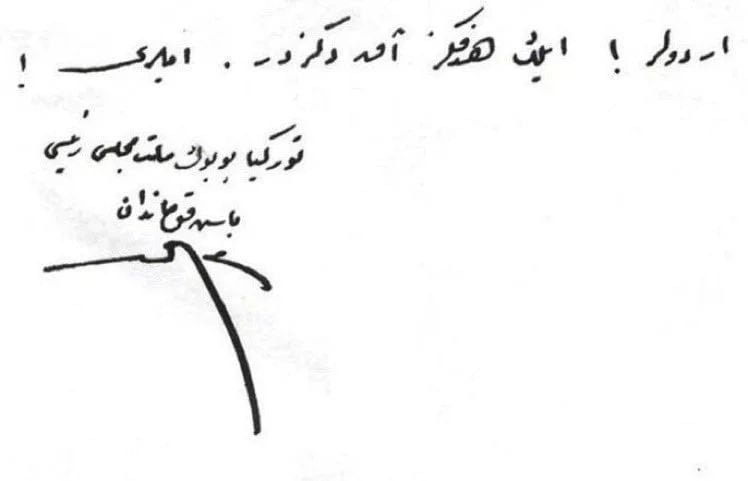 اردولر ! ایلك هدفكز آق دكزدر . ایلری !
توركیا بویوك ملت مجلسی رئیسی
باش قوماندان